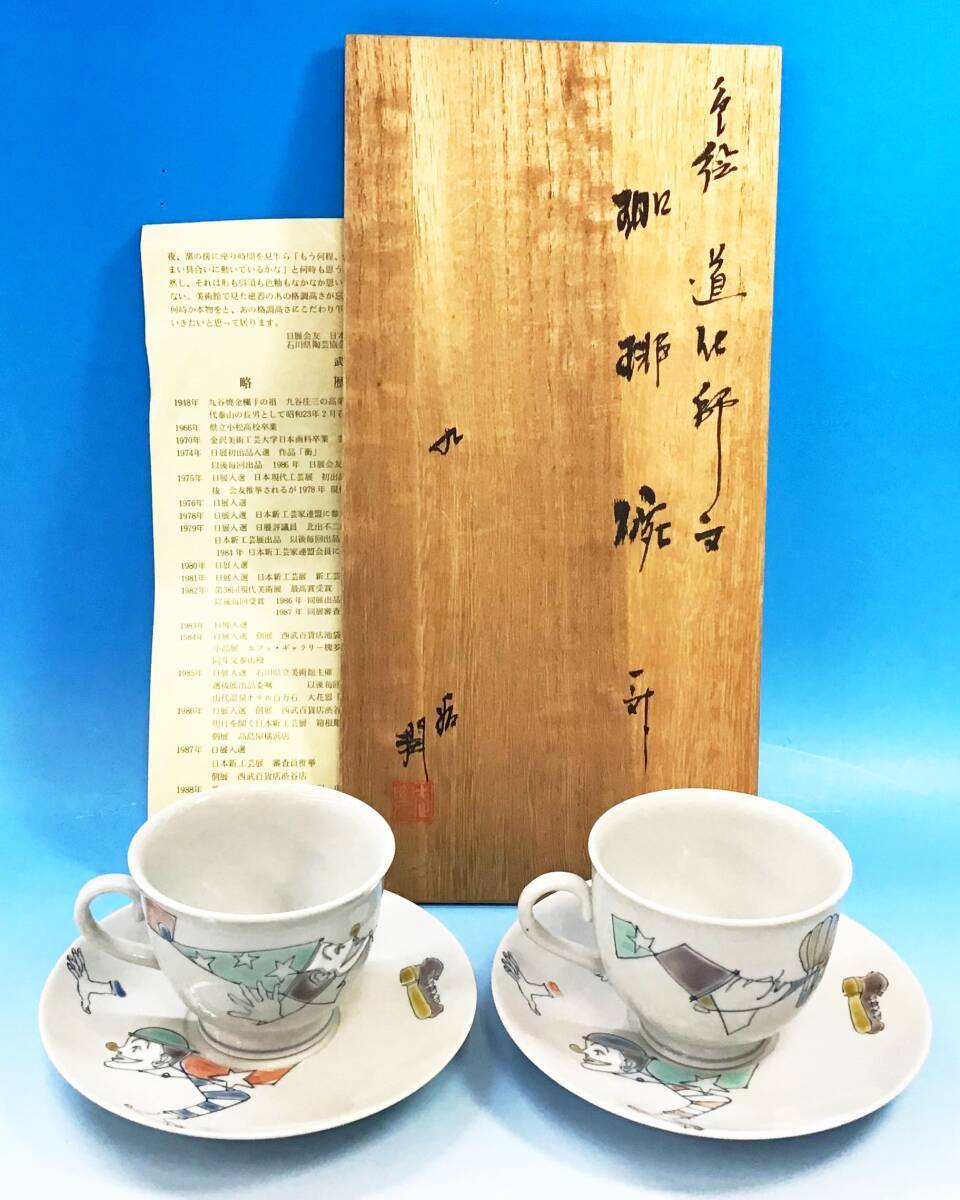 色絵 道化師文
珈琲碗
一対
九谷
潤
夜、窯の傍に座り時間を見乍ら「もう何程、
まい具合に動いているかな」と何時も思う
然し、それは形も呉須も色釉もなかなか思い
ない。美術館で見た磁器のあの格調高さが忘
何時か本物をと、あの格調高さにこだわり乍
いきたいと思って居ります。
日展会友 日本
石川県陶芸協会
武
略 歴
1948年 九谷焼金襴手の祖 九谷庄三の高弟
代泰山の長男として昭和23年2月
1966年 県立小松高校卒業
1970年 金沢美術工芸大学日本画科卒業
1974年 日展初出品入選 作品「衝」
以後毎回出品 1986年 日展会友
1975年 日展入選 日本現代工芸展 初出品
抜 会友推挙されるが1978年 現代
1976年 日展入選
1978年 日展入選 日本新工芸家連盟に参
1979年 日展入選 日展評議員 北出不二
日本新工芸展出品 以後毎回出品
1984年 日本新工芸家連盟会員に
1980年 日展入選
1981年 日展入選 日本新工芸展 新工芸
1982年 第38回現代美術展 最高賞受賞
以後毎回受賞 1986年 同展出品
1987年 同展審査
1983年 日展入選
1984年 日展入選 個展 西武百貨店池袋
小品展 カフェ・ギャラリー槐多
同年父泰山歿
1985年 日展入選 石川県立美術館主催
選抜展出品委嘱 以後毎回
山代温泉ホテル百万石 大花器「
1986年 日展入選 個展 西武百貨店渋谷
明日を開く日本新工芸展 箱根彫
個展 高島屋横浜店
1987年 日展入選
日本新工芸展 審査員推挙
個展 西武百貨店渋谷店
1988年